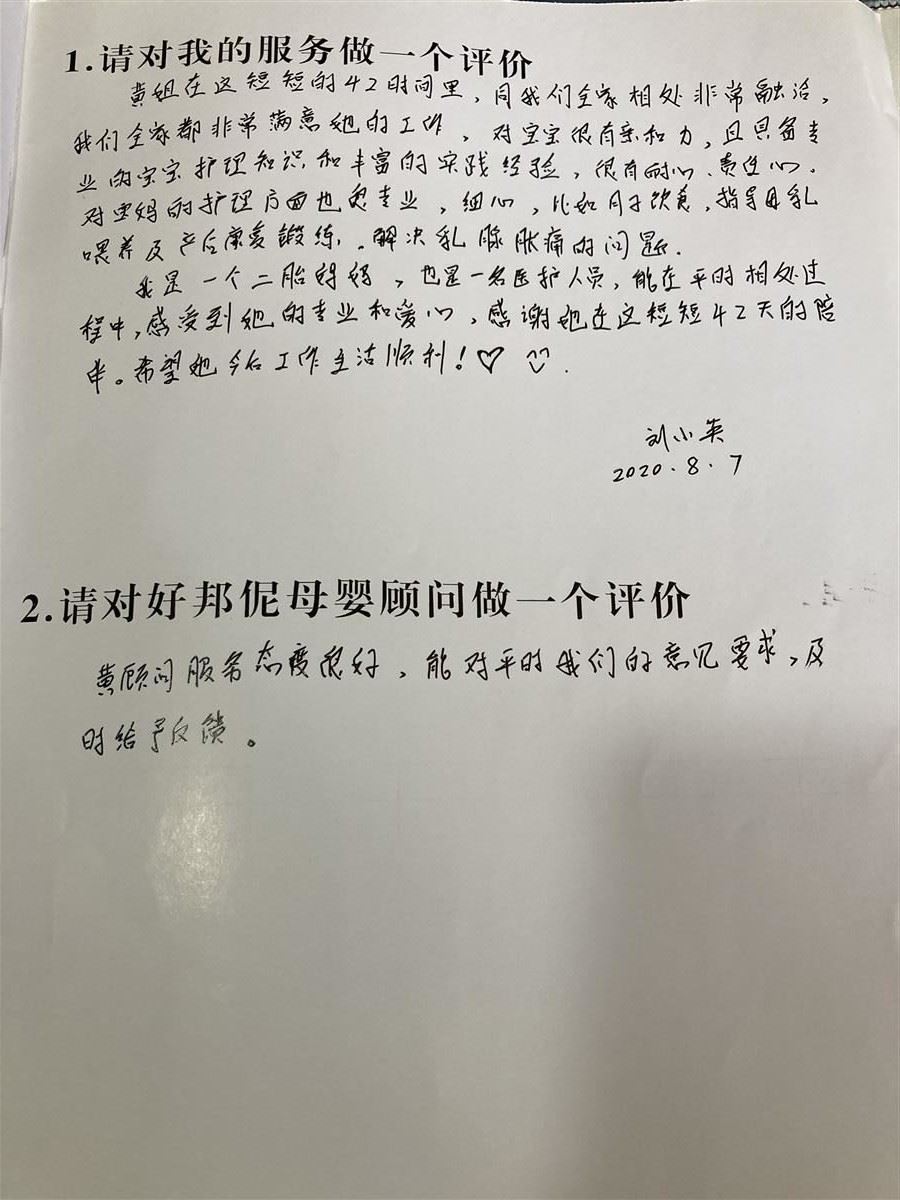 1.请对我的服务做一个评价
黄姐在这短短的42时间里，同我们全家相处非常融洽，
我们全家都非常满意她的工作，对宝宝很有亲和力，且具备专
业的宝宝护理知识和丰富的实践经验，很有耐心、责任心，
对宝妈的护理方面也更专业，细心，比如月子饮食，指导母乳
喂养及产后康复锻练。解决乳腺胀痛的问题.
我是一个二胎妈妈，也是一名医护人员，能在平时相处过
程中，感受到她的专业和爱心，感谢她在这短短42天的陪
伴。希望她今后工作生活顺利！♡ ☺.
刘小英
2020.8.7
2.请对好邦伲母婴顾问做一个评价
黄顾问服务态度很好，能对平时我们的意见要求，及
时给予反馈。